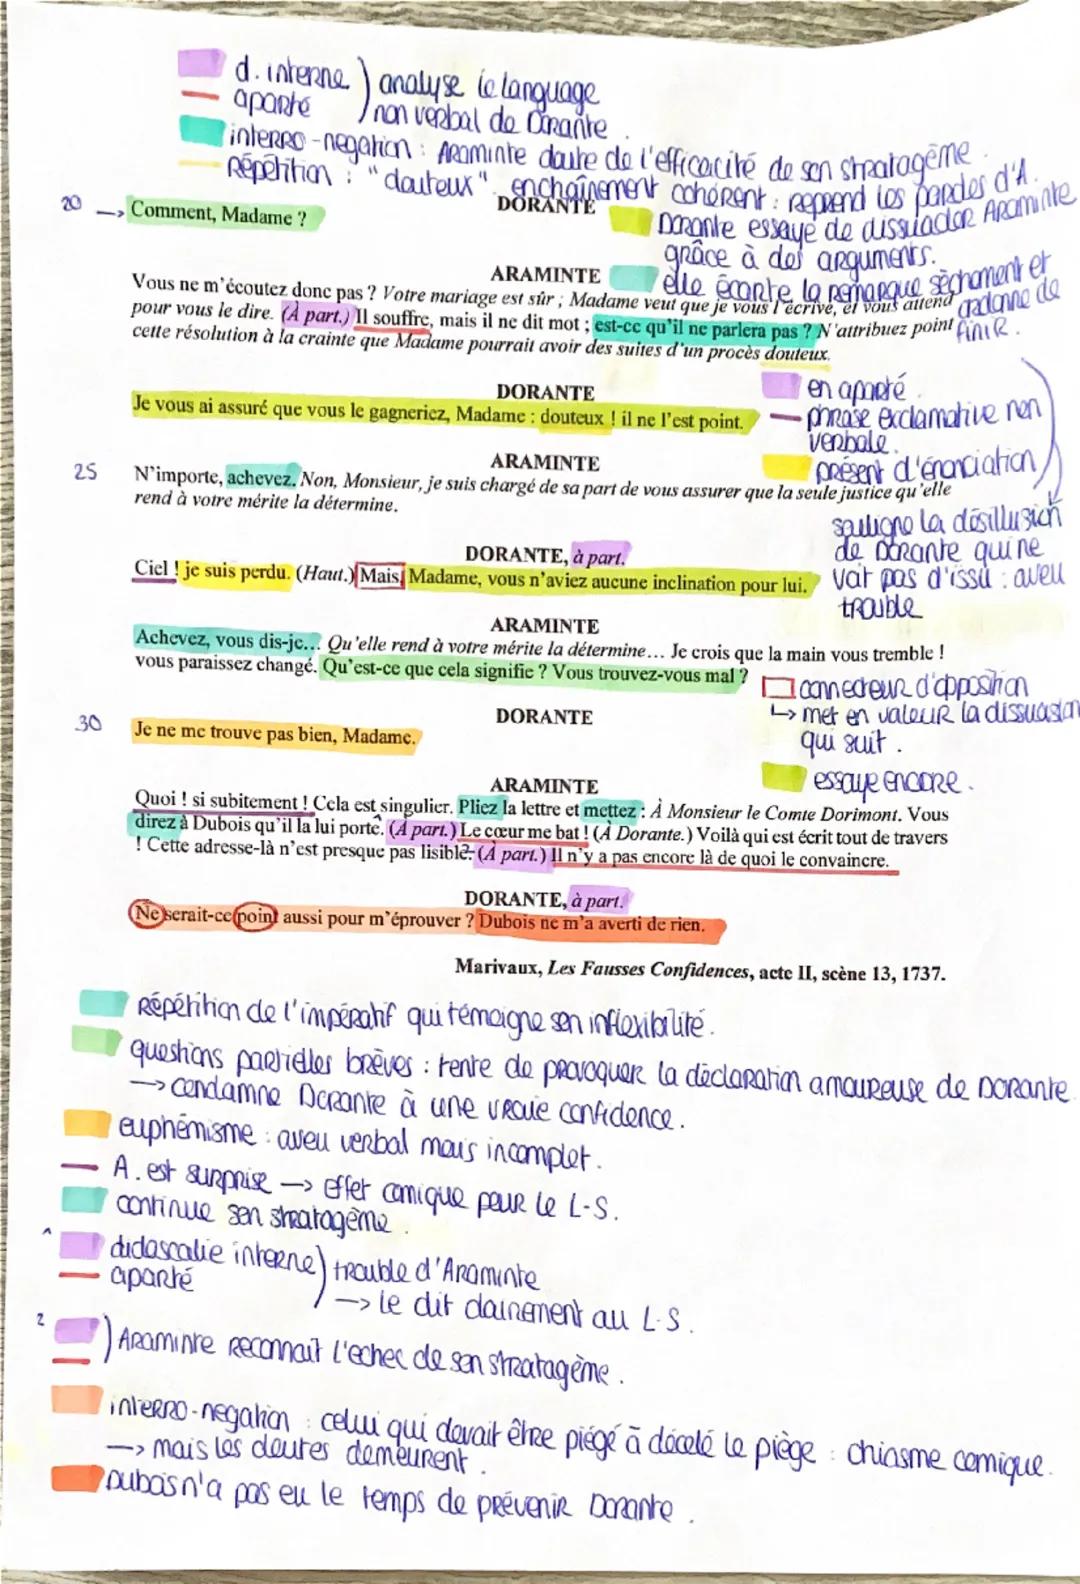 d. interne ) analyse le language
aparté ) non verbal de Dorante.
interro-negation : Araminte doute de l'efficacité de son stratagème.
Répétition : "douteux". enchaînement cohérent : reprend les paroles d'A.
20 → Comment, Madame ?
DORANTE
Dorante essaye de dissuader Araminte
grâce à des arguments.
ARAMINTE
elle écarte la remarque sèchement et
ordonne de
finir.
Vous ne m'écoutez donc pas ? Votre mariage est sûr ; Madame veut que je vous l'écrive, et vous attend
pour vous le dire. (À part.) Il souffre, mais il ne dit mot ; est-ce qu'il ne parlera pas ? N'attribuez point
cette résolution à la crainte que Madame pourrait avoir des suites d'un procès douteux.
DORANTE
Je vous ai assuré que vous le gagneriez, Madame : douteux ! il ne l'est point.
en aparté.
phrase exclamative non
verbale.
présent d'énonciation
ARAMINTE
25 N'importe, achevez. Non, Monsieur, je suis chargé de sa part de vous assurer que la seule justice qu'elle
rend à votre mérite la détermine.
souligne la désillusion
de Dorante qui ne
voit pas d'issu : aveu
trouble
DORANTE, à part.
Ciel ! je suis perdu. (Haut.) Mais, Madame, vous n'aviez aucune inclination pour lui.
ARAMINTE
Achevez, vous dis-je... Qu'elle rend à votre mérite la détermine... Je crois que la main vous tremble !
vous paraissez changé. Qu'est-ce que cela signifie ? Vous trouvez-vous mal ?
connecteur d'opposition
↳ met en valeur la dissuasion
qui suit.
essaye encore.
DORANTE
30 Je ne me trouve pas bien, Madame.
ARAMINTE
Quoi ! si subitement ! Cela est singulier. Pliez la lettre et mettez : À Monsieur le Comte Dorimont. Vous
direz à Dubois qu'il la lui porte. (À part.) Le cœur me bat ! (À Dorante.) Voilà qui est écrit tout de travers
! Cette adresse-là n'est presque pas lisible. (À part.) Il n'y a pas encore là de quoi le convaincre.
DORANTE, à part.
Ne serait-ce point aussi pour m'éprouver ? Dubois ne m'a averti de rien.
Marivaux, Les Fausses Confidences, acte II, scène 13, 1737.
Répétition de l'impératif qui témoigne son inflexibilité.
questions partielles brèves : tente de provoquer la déclaration amoureuse de Dorante.
→ condamne Dorante à une vraie confidence.
euphémisme : aveu verbal mais incomplet.
A. est surprise → effet comique pour le L-S.
continue son stratagème.
1 didascalie interne ) trouble d'Araminte
aparté ) → le dit clairement au L-S.
2 ) Araminte reconnait l'echec de son stratagème.
interro-negation : celui qui devait être piégé à décelé le piège : chiasme comique.
→ mais les doutes demeurent.
Dubois n'a pas eu le temps de prévenir Dorante.